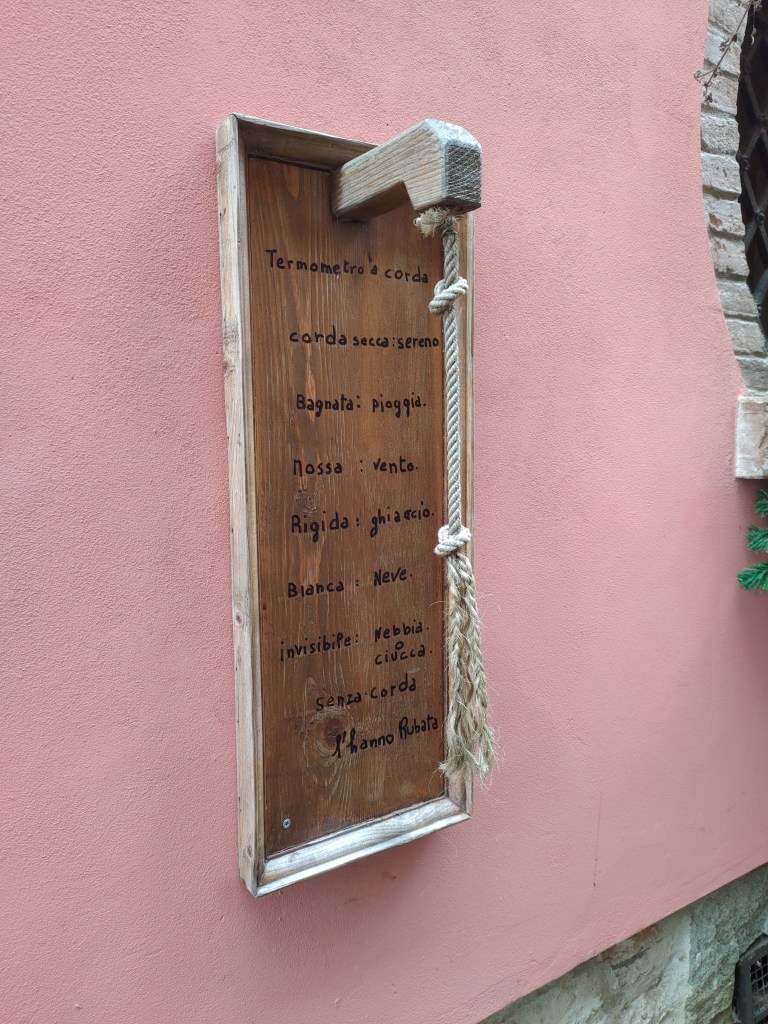 Termometro a corda
corda secca: sereno
Bagnata: pioggia.
Mossa : vento.
Rigida: ghiaccio.
Bianca : Neve.
invisibile: Nebbia.
o
ciucca.
senza corda
l'hanno Rubata